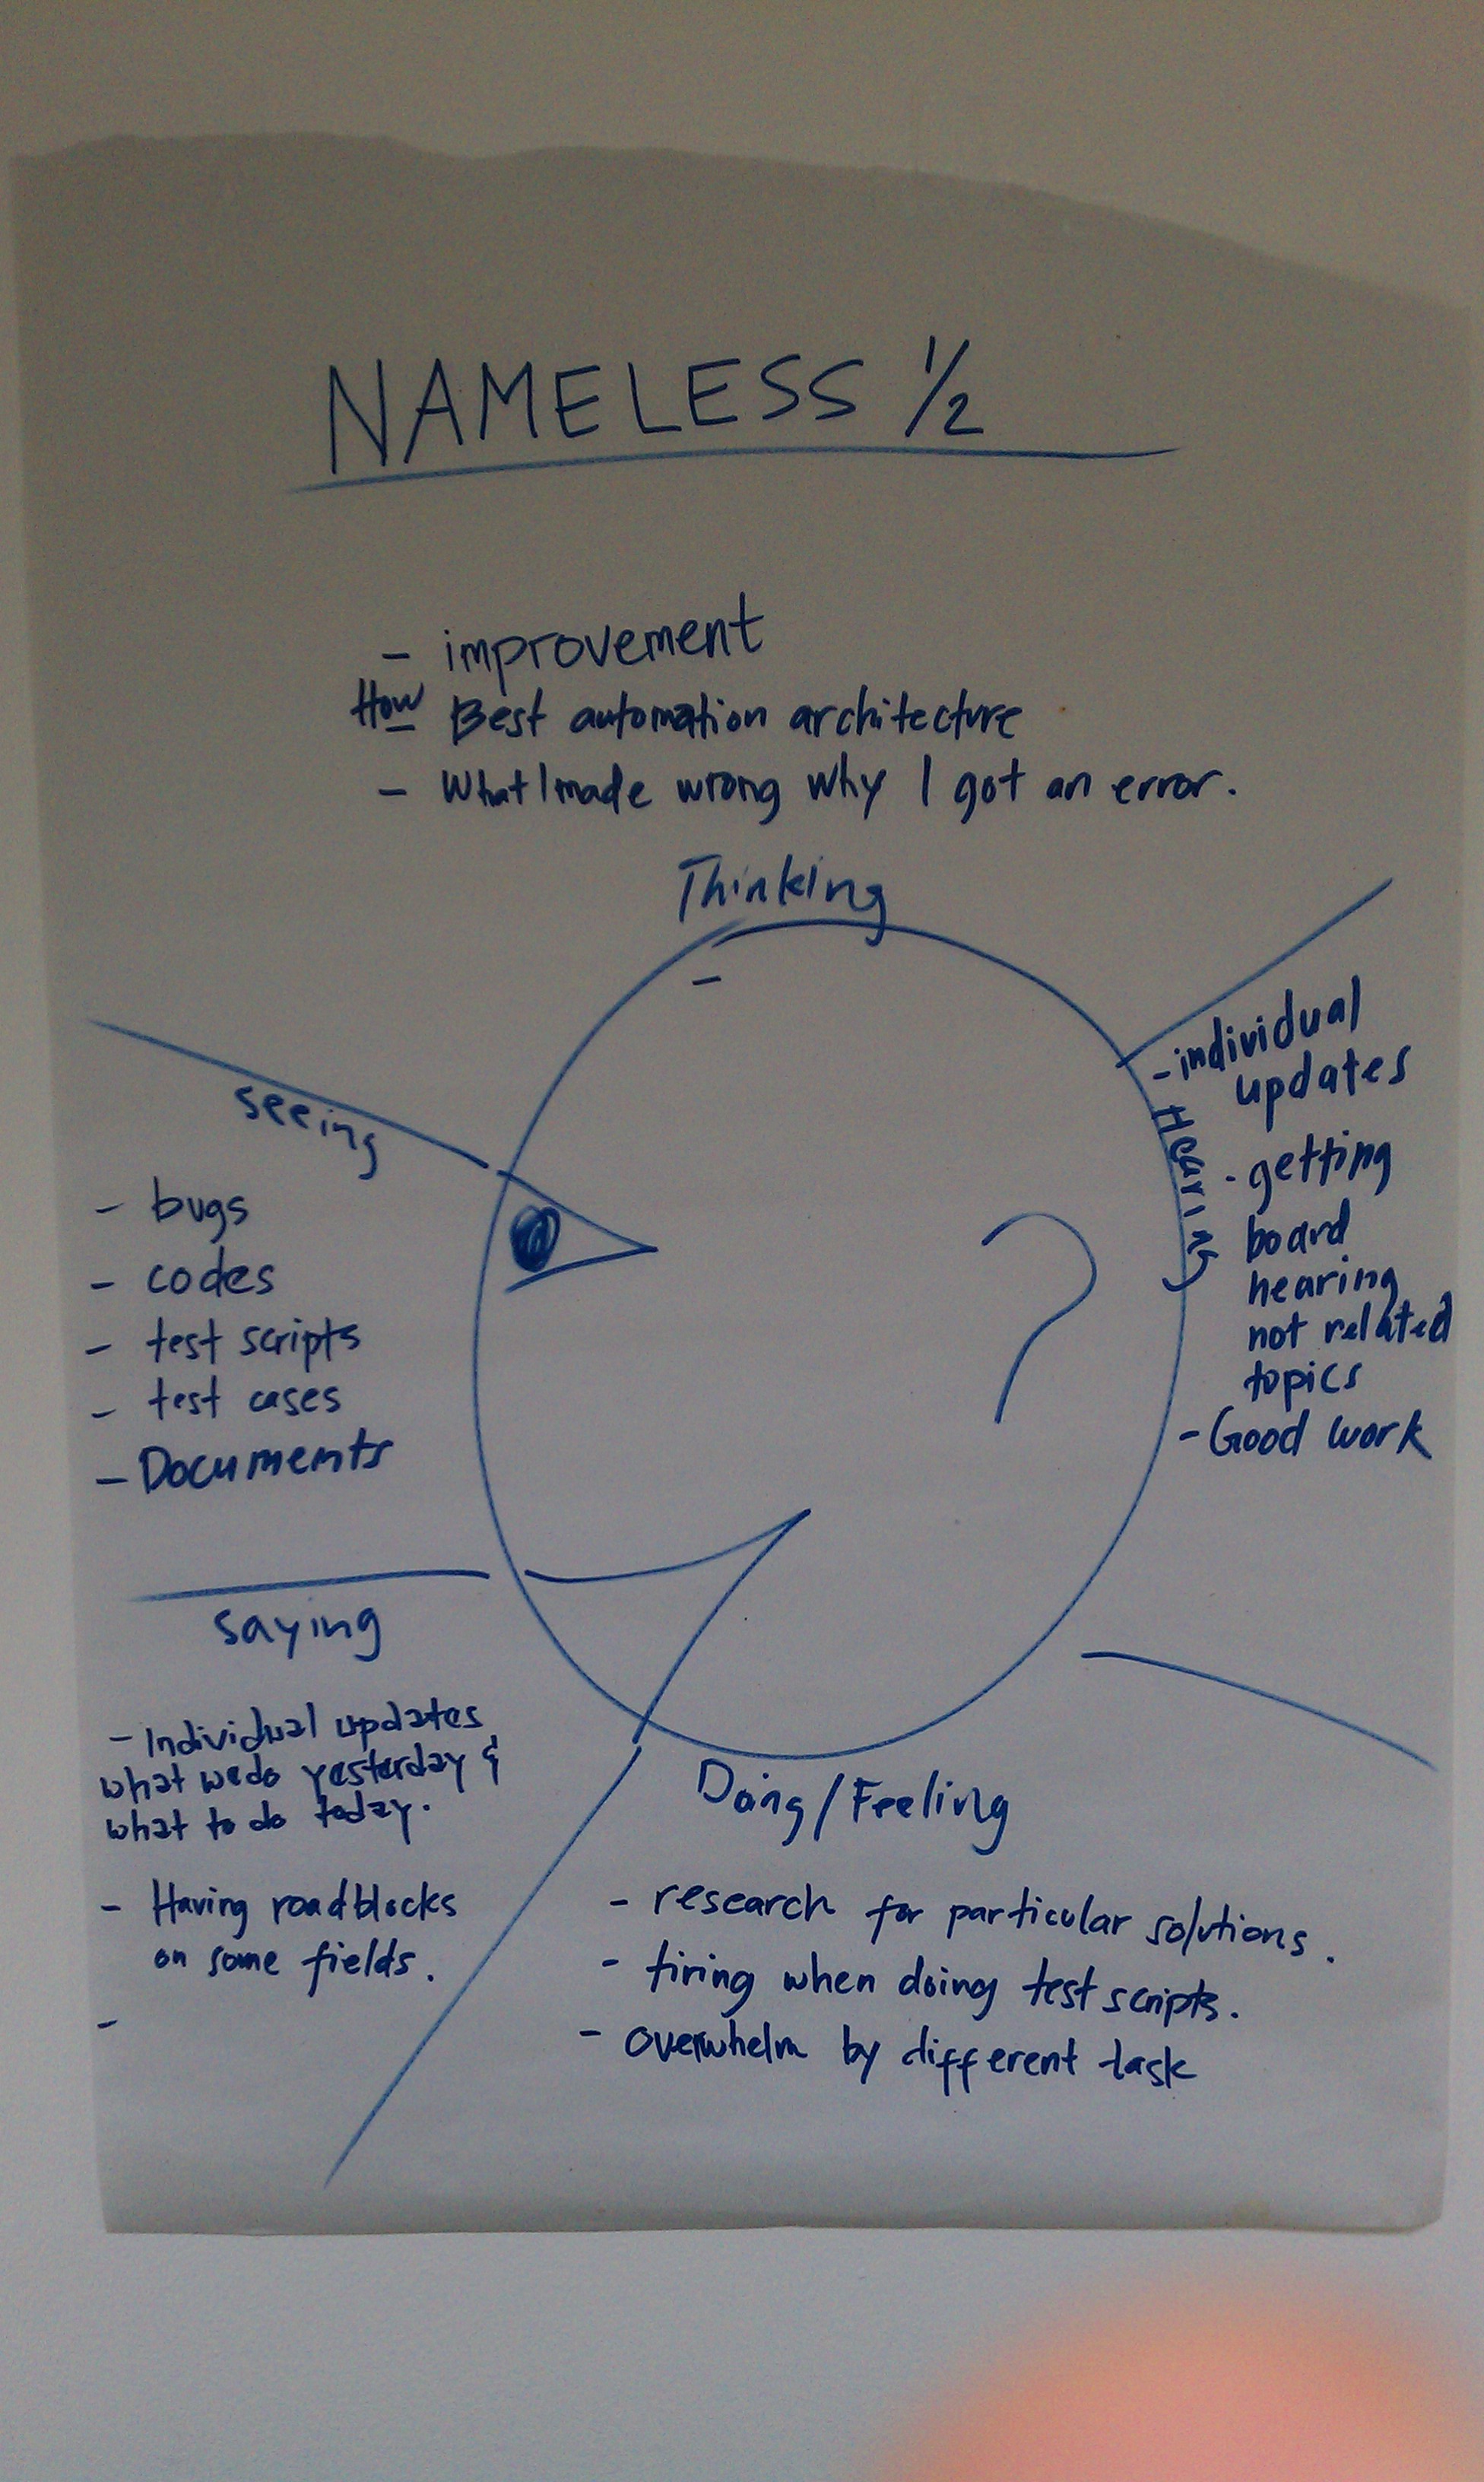 NAMELESS 1/2
- improvement
How Best automation architecture
- What I made wrong why I got an error.
Thinking
-
seeing
- bugs
- codes
- test scripts
- test cases
- Documents
Hearing
- individual
updates
- getting
board
hearing
not related
topics
- Good work
saying
- Individual updates
what we do yesterday &
what to do today.
- Having roadblocks
on some fields.
-
Doing/Feeling
- research for particular solutions.
- tiring when doing test scripts.
- overwhelm by different task